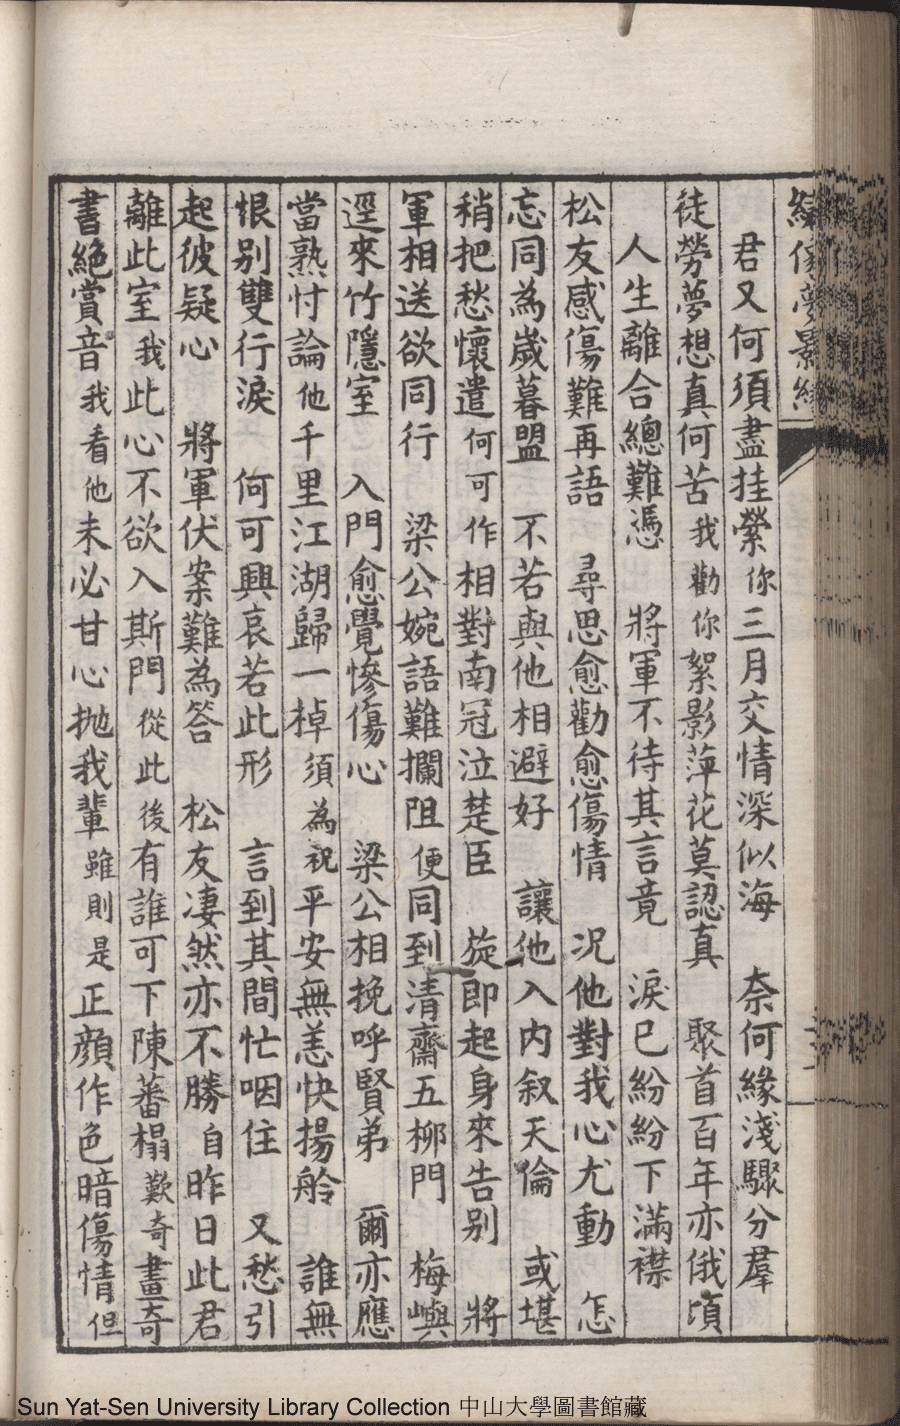 繡像夢影緣
君又何須盡挂縈 你三月交情深似海 奈何緣淺驟分羣
徒勞夢想真何苦 我勸你絮影萍花莫認真 聚首百年亦俄頃
人生離合總難憑 將軍不待其言竟 淚已紛紛下滿襟
松友感傷難再語 尋思愈勸愈傷情 况他對我心尤動 怎
忘同為歲暮盟 不若與他相避好 讓他入内叙天倫 或堪
稍把愁懷遣 何可作相對南冠泣楚臣 旋即起身來告别 將
軍相送欲同行 梁公婉語難攔阻 便同到清齋五柳門 梅嶼
逕來竹隱室 入門愈覺慘傷心 梁公相挽呼賢弟 爾亦應
當熟忖論 他千里江湖歸一棹 須為祝平安無恙快揚舲 誰無
恨别雙行淚 何可興哀若此形 言到其間忙咽住 又愁引
起彼疑心 將軍伏案難為答 松友凄然亦不勝 自昨日此君
離此室 我此心不欲入斯門 從此後有誰可下陳蕃榻 歎奇畫奇
書絶賞音 我看他未必甘心抛我輩 雖則是正顔作色暗傷情 但
Sun Yat-Sen University Library Collection 中山大學圖書館藏